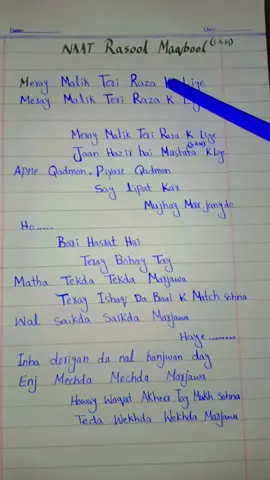 Name:
Date:
NAAT Rasool Maqbool (S.A.W)
Meray Malik Teri Raza K Liye
Meray Malik Teri Raza K Liye
Meray Malik Teri Raza K Liye
Jaan Hazir hai Mustafa (S.A.W) K Liye
Apne Qadmon. Piyare Qadmon
Say lipat Kar
Mujhay Mar janyde
Ho.....
Bari Hasrat Hai
Teray Bohay Tay
Matha Tekda Tekda Marjawa
Teray Ishaq Da Baal K Match sohna
Wal Saikda Saikda Marjawa
Haye.........
Inha doriyan da nal banjwan day
Enj Mechda Mechda Marjawa
Howay Waqat Akheer Tay Mukh sohna
Teda Wekhda Wekhda Marjawa